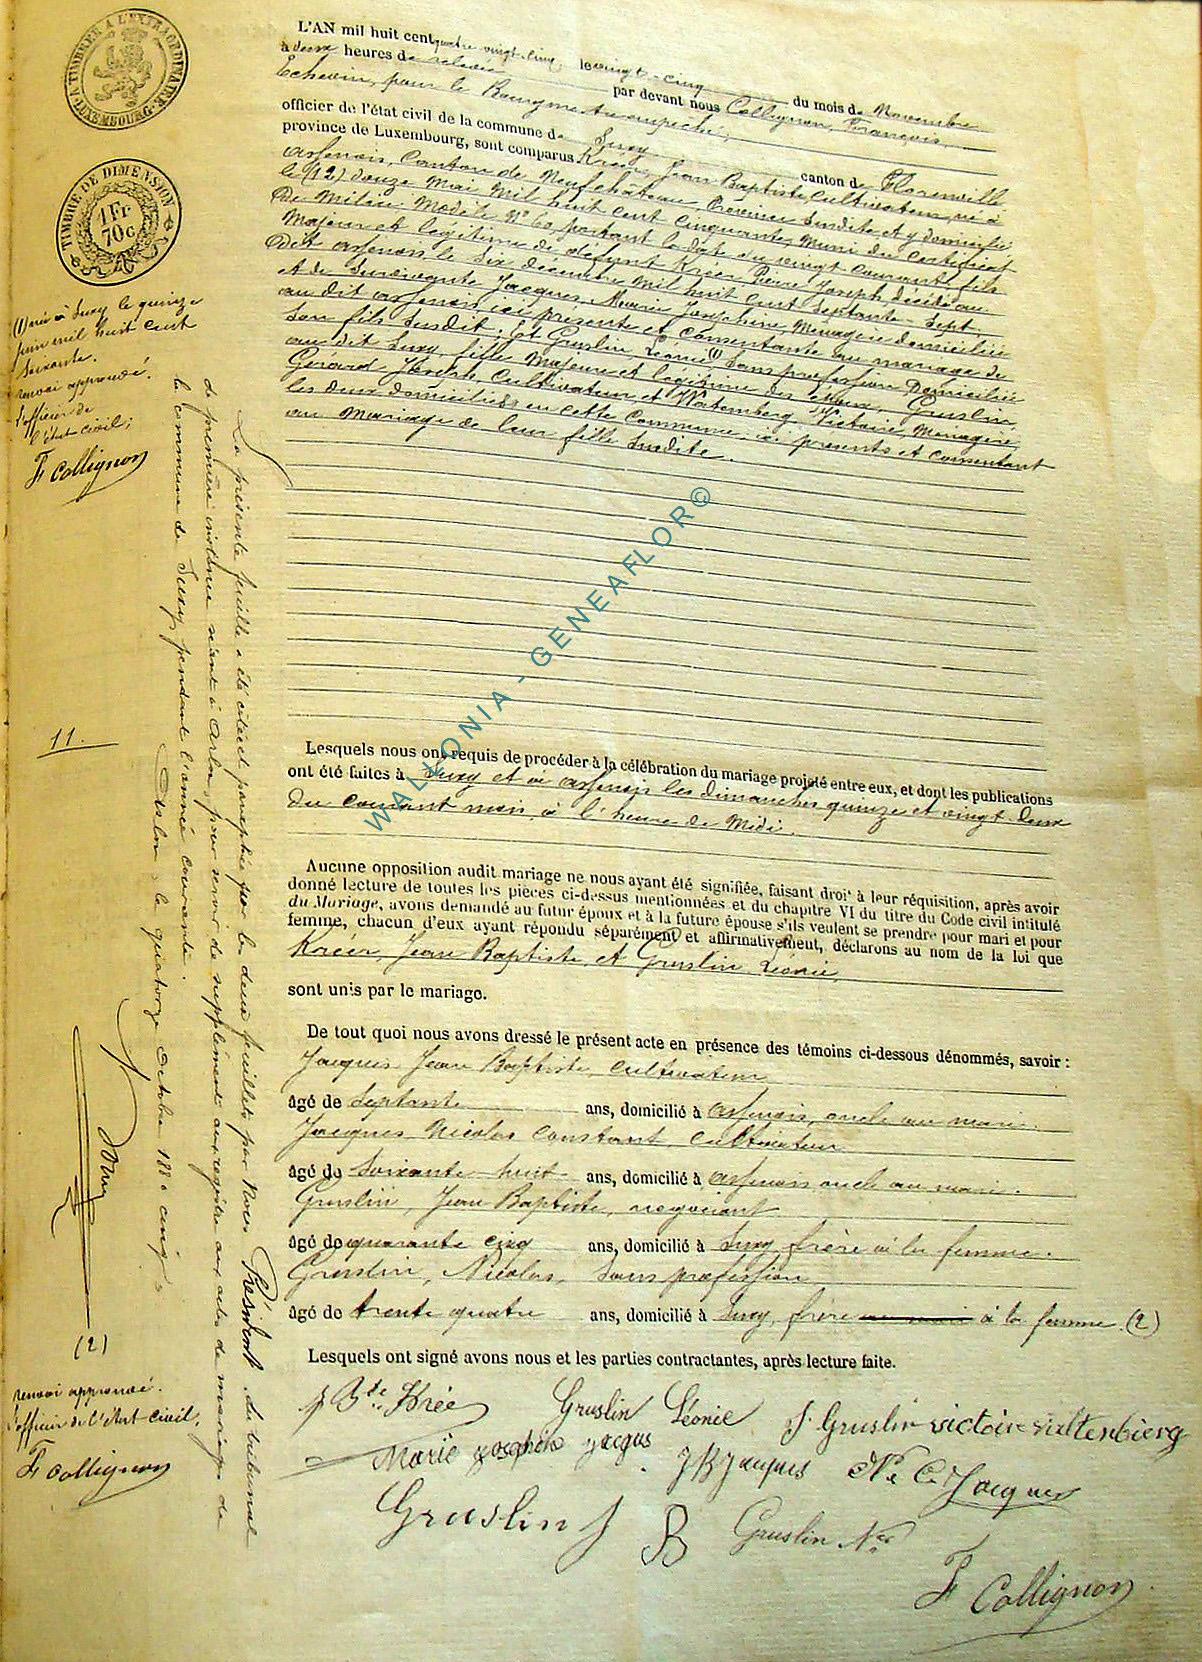 TIMBRÉ A L'EXTRAORDINAIRE
LUXEMBOURG
TIMBRE DE DIMENSION
1 Fr
70 c
L'AN mil huit cent quatre vingt-cinq, le vingt-cinq du mois de Novembre
à deux heures de relevée par devant nous Collignon, François,
Echevin, pour le Bourgmestre empêché,
officier de l'état civil de la commune de Suxy canton de Florenville
province de Luxembourg, sont comparus Kréer, Jean Baptiste, cultivateur, né à
assenois, Canton de Neufchâteau, Province Susdite et y domicilié
le (12) douze Mai mil huit cent cinquante, Muni du certificat
De Milice Modèle N° 60, portant la date du vingt courant, fils
Majeur et légitime de défunt Kréer Pierre Joseph, décédé au
dit assenois, le six décembre mil huit cent septante-sept,
et de Survivante Jacques, Marie Josephine, Ménagère domiciliée
au dit assenois, ici présente et consentante au mariage de
Son fils Susdit. Et Gruslin, Léonie (1) Sans profession, Domiciliée
au dit Suxy, fille Majeure et légitime des époux, Gruslin,
Gérard Joseph, Cultivateur, et Watemberg, Victoire, Ménagère,
les deux domiciliés en cette Commune, ici présents et consentant
au Mariage de leur fille Susdite.
(1) née à Suxy le quinze
juin mil huit cent
soixante.
renvoi approuvé.
L'officier de
l'état civil;
F Collignon
La présente feuille a été cotée et paraphée par les deux feuillets par Nous Président du tribunal
de première instance séant à Arlon, pour servir de supplément au registre aux actes de mariage de
la commune de Suxy, pendant l'année courante.
Arlon, le quatorze Octobre 188 cinq
11.
WALLONIA - GENEAFLOR©
Lesquels nous ont requis de procéder à la célébration du mariage projeté entre eux, et dont les publications
ont été faites à Suxy et à assenois les dimanches quinze et vingt-deux
du courant mois, à l'heure de Midi.
Aucune opposition audit mariage ne nous ayant été signifiée, faisant droit à leur réquisition, après avoir
donné lecture de toutes les pièces ci-dessus mentionnées et du chapitre VI du titre du Code civil intitulé
du Mariage, avons demandé au futur époux et à la future épouse s'ils veulent se prendre pour mari et pour
femme, chacun d'eux ayant répondu séparément et affirmativement, déclarons au nom de la loi que
Kréer, Jean Baptiste, et Gruslin Léonie,
sont unis par le mariage.
De tout quoi nous avons dressé le présent acte en présence des témoins ci-dessous dénommés, savoir :
Jacques Jean Baptiste, cultivateur
âgé de Septante ans, domicilié à assenois, oncle au mari.
Jacques Nicolas Constant, Cultivateur
âgé de Soixante huit ans, domicilié à assenois oncle au mari.
Gruslin, Jean Baptiste, negociant
âgé de quarante cinq ans, domicilié à Suxy, frère à la femme.
Gruslin, Nicolas, Sans profession
âgé de trente quatre ans, domicilié à Suxy, frère au mari à la femme. (2)
Lesquels ont signé avons nous et les parties contractantes, après lecture faite.
(2)
renvoi approuvé.
L'officier de l'état civil,
F Collignon
J Bte Krée Gruslin Léonie J. Gruslin victoire valtenbierg
Marie josephine jacqus JB Jacques Ns C. Jacques
Gruslin J B Gruslin Nas
F Collignon